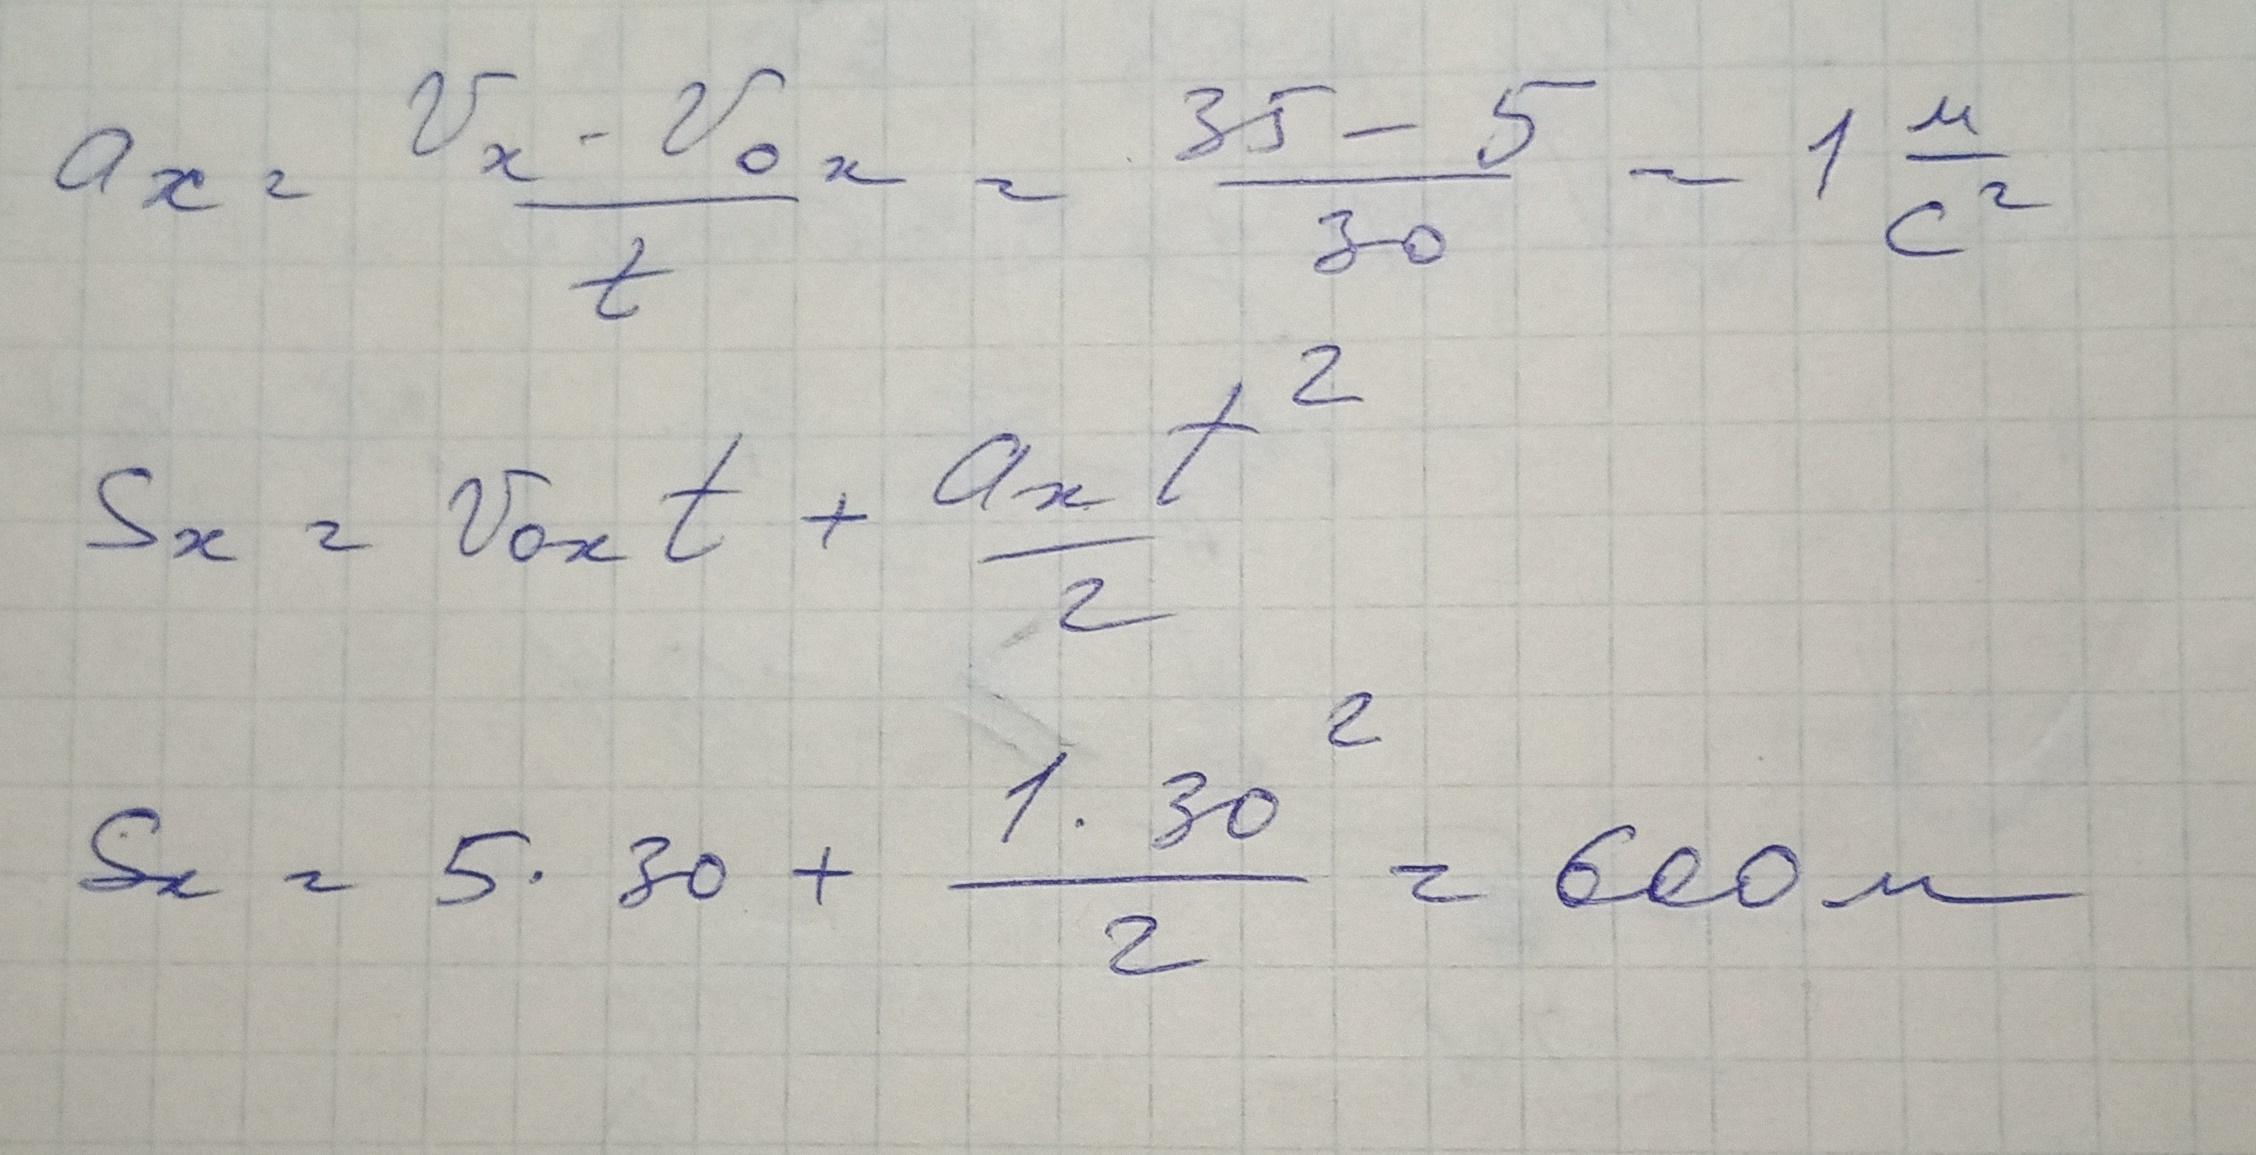 aₓ = (vₓ - v₀ₓ)/t = (35 - 5)/30 = 1 м/с²
Sₓ = v₀ₓt + aₓt²/2
Sₓ = 5 · 30 + 1 · 30²/2 = 600 м